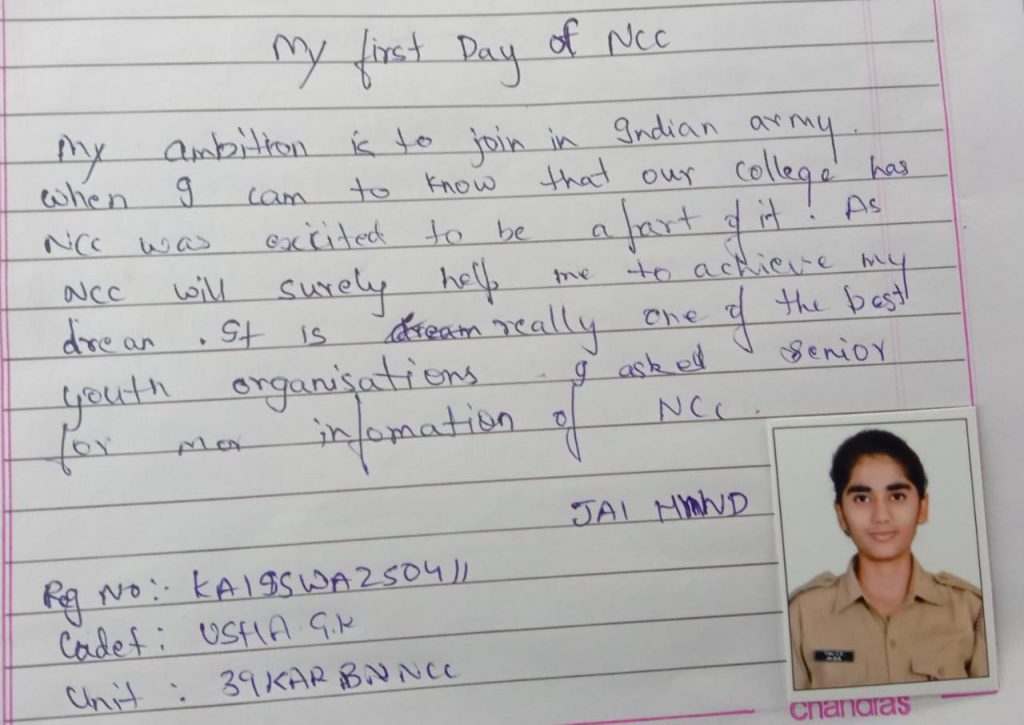 My first Day of NCC
My ambition is to join in Indian army.
when I cam to know that our college has
NCC was excited to be a part of it! As
NCC will surely help me to achieve my
drean. It is really one of the best
youth organisations. I asked senior
for mor infomation of NCC.
JAI HIND
Reg No:- KA19SWA250411
Cadet: USHA G.K
Unit : 39 KAR BN NCC
chandras